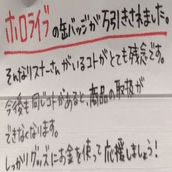 ホロライブの缶バッジが万引きされました。
そんなリスナーさんがいるコトがとても残念です。
今後も同じコトがあると、商品の取扱が
できなくなります。
しっかりグッズにお金を使って応援しましょう!